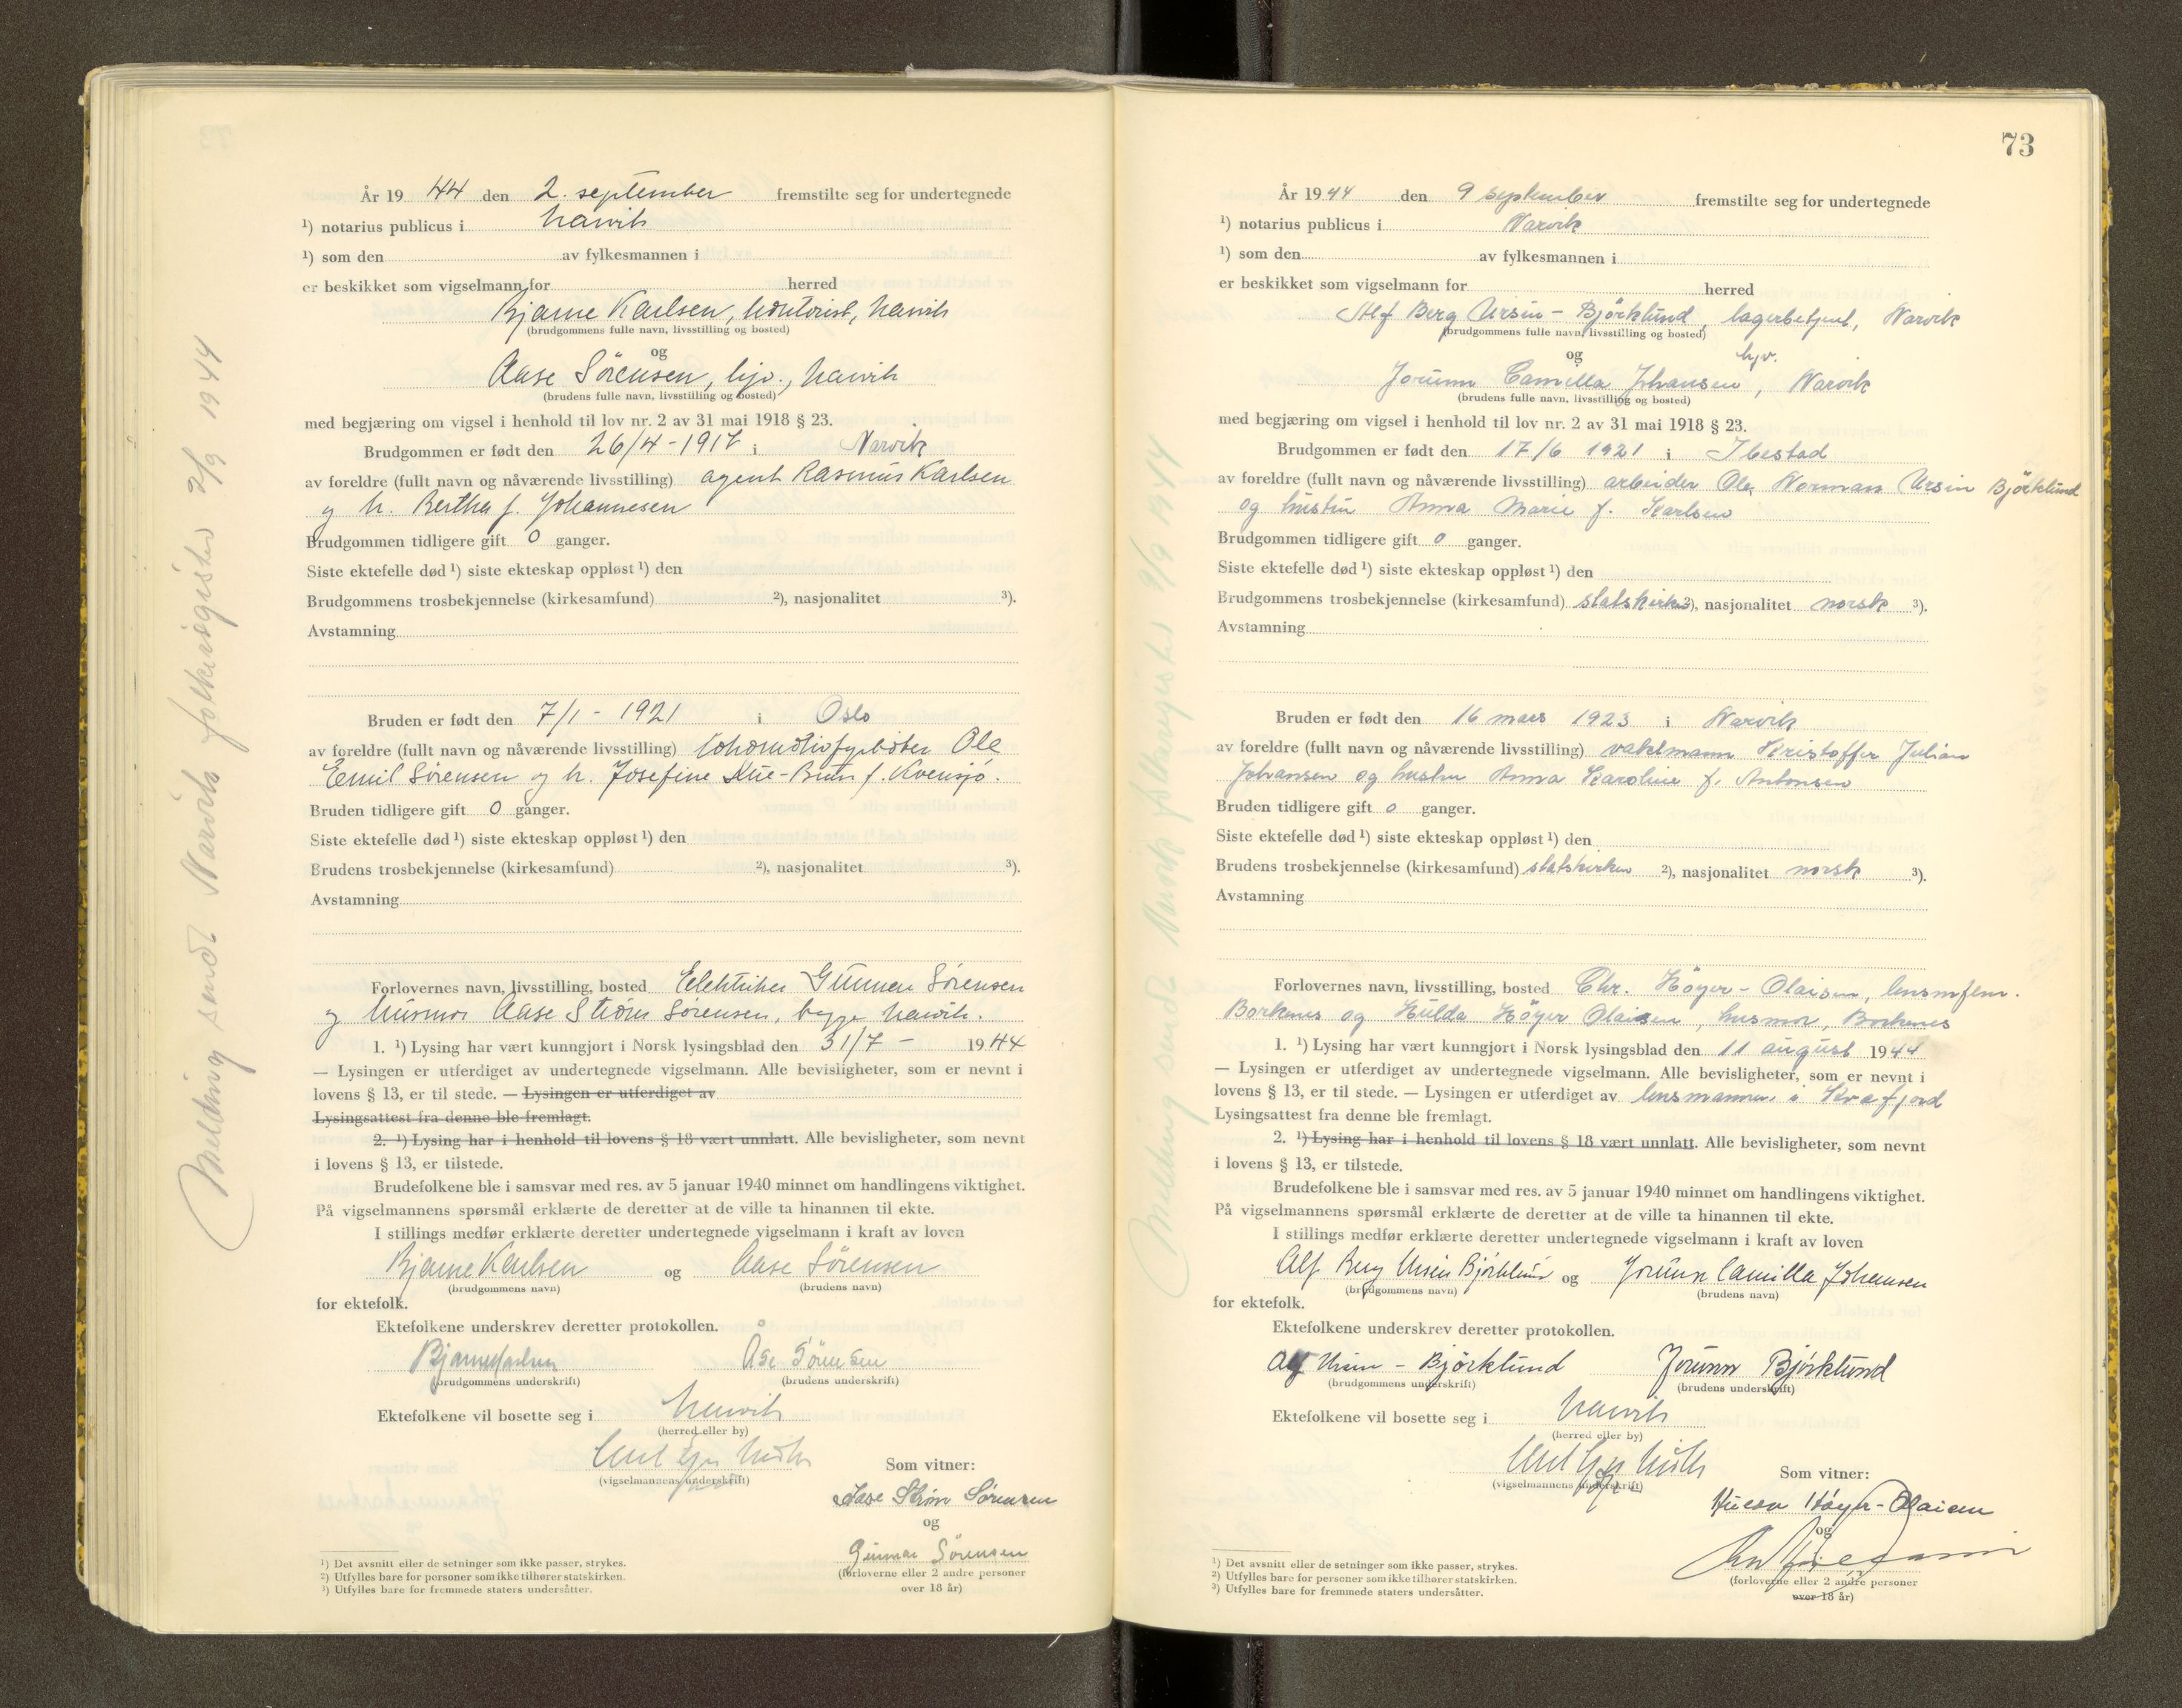 År 19 44 den 2. september fremstilte seg for undertegnede
¹) notarius publicus i Narvik
¹) som den av fylkesmannen i
er beskikket som vigselmann for herred
Bjarne Karlsen, kontorist, Narvik
(brudgommens fulle navn, livsstilling og bosted)
og
Aase Sörensen, hjv., Narvik
(brudens fulle navn, livsstilling og bosted)
med begjæring om vigsel i henhold til lov nr. 2 av 31 mai 1918 § 23.
Brudgommen er født den 26/4-1917 i Narvik
av foreldre (fullt navn og nåværende livsstilling) agent Rasmus Karlsen
og h. Bertha f. Johannesen
Brudgommen tidligere gift 0 ganger.
Siste ektefelle død ¹) siste ekteskap oppløst ¹) den
Brudgommens trosbekjennelse (kirkesamfund) ²), nasjonalitet ³).
Avstamning
Bruden er født den 7/1 - 1921 i Oslo
av foreldre (fullt navn og nåværende livsstilling) lokomotivfyrböter Ole
Emil Sørensen og h. Josefine f. Kvensjö.
Bruden tidligere gift 0 ganger.
Siste ektefelle død ¹) siste ekteskap oppløst ¹) den
Brudens trosbekjennelse (kirkesamfund) ²), nasjonalitet ³).
Avstamning
Forlovernes navn, livsstilling, bosted Elektriker Gunnar Sörensen
og husmor Aase Ström Sörensen, begge Narvik.
1. ¹) Lysing har vært kunngjort i Norsk lysingsblad den 31/7 - 19 44
— Lysingen er utferdiget av undertegnede vigselmann. Alle bevisligheter, som er nevnt i
lovens § 13, er til stede. — Lysingen er utferdiget av
Lysingsattest fra denne ble fremlagt.
2. ¹) Lysing har i henhold til lovens § 18 vært unnlatt. Alle bevisligheter, som nevnt
i lovens § 13, er tilstede.
Brudefolkene ble i samsvar med res. av 5 januar 1940 minnet om handlingens viktighet.
På vigselmannens spørsmål erklærte de deretter at de ville ta hinannen til ekte.
I stillings medfør erklærte deretter undertegnede vigselmann i kraft av loven
Bjarne Karlsen og Aase Sörensen
(brudgommens navn) (brudens navn)
for ektefolk.
Ektefolkene underskrev deretter protokollen.
Bjarne Karlsen Åse Sörensen
(brudgommens underskrift) (brudens underskrift)
Ektefolkene vil bosette seg i Narvik
(herred eller by)
(vigselmannens underskrift) Som vitner:
Aase Strøm Sörensen
og
Gunnar Sörensen
(forloverne eller 2 andre personer
over 18 år)
¹) Det avsnitt eller de setninger som ikke passer, strykes.
²) Utfylles bare for personer som ikke tilhører statskirken.
³) Utfylles bare for fremmede staters undersåtter.
Melding sendt Narvik folkeregister 2/9 1944
73
År 19 44 den 9 september fremstilte seg for undertegnede
¹) notarius publicus i Narvik
¹) som den av fylkesmannen i
er beskikket som vigselmann for herred
Alf Berg Ursin-Björklund, lagerbetjent, Narvik
(brudgommens fulle navn, livsstilling og bosted)
og hjv.
Jorunn Camilla Johansen, Narvik
(brudens fulle navn, livsstilling og bosted)
med begjæring om vigsel i henhold til lov nr. 2 av 31 mai 1918 § 23.
Brudgommen er født den 17/6 1921 i Ibestad
av foreldre (fullt navn og nåværende livsstilling) arbeider Ole Norman Ursin Björklund
og hustru Anna Marie f. Karlsen
Brudgommen tidligere gift 0 ganger.
Siste ektefelle død ¹) siste ekteskap oppløst ¹) den
Brudgommens trosbekjennelse (kirkesamfund) statskirken ²), nasjonalitet norsk ³).
Avstamning
Bruden er født den 16 mars 1923 i Narvik
av foreldre (fullt navn og nåværende livsstilling) vaktmann Kristoffer Julian
Johansen og hustru Anna Karoline f. Antonsen
Bruden tidligere gift 0 ganger.
Siste ektefelle død ¹) siste ekteskap oppløst ¹) den
Brudens trosbekjennelse (kirkesamfund) statskirken ²), nasjonalitet norsk ³).
Avstamning
Forlovernes navn, livsstilling, bosted Chr. Höyer-Olaisen, lensmflm.
Borkenes og Hulda Höyer Olaisen, husmor, Borkenes
1. ¹) Lysing har vært kunngjort i Norsk lysingsblad den 11 august 19 44
— Lysingen er utferdiget av undertegnede vigselmann. Alle bevisligheter, som er nevnt i
lovens § 13, er til stede. — Lysingen er utferdiget av lensmannen i Kvæfjord
Lysingsattest fra denne ble fremlagt.
2. ¹) Lysing har i henhold til lovens § 18 vært unnlatt. Alle bevisligheter, som nevnt
i lovens § 13, er tilstede.
Brudefolkene ble i samsvar med res. av 5 januar 1940 minnet om handlingens viktighet.
På vigselmannens spørsmål erklærte de deretter at de ville ta hinannen til ekte.
I stillings medfør erklærte deretter undertegnede vigselmann i kraft av loven
Alf Berg Ursin Björklund og Jorunn Camilla Johansen
(brudgommens navn) (brudens navn)
for ektefolk.
Ektefolkene underskrev deretter protokollen.
Alf Ursin - Björklund Jorunn Björklund
(brudgommens underskrift) (brudens underskrift)
Ektefolkene vil bosette seg i Narvik
(herred eller by)
(vigselmannens underskrift) Som vitner:
Höyer-Olaisen
og
(forloverne eller 2 andre personer
over 18 år)
¹) Det avsnitt eller de setninger som ikke passer, strykes.
²) Utfylles bare for personer som ikke tilhører statskirken.
³) Utfylles bare for fremmede staters undersåtter.
Melding sendt Narvik folkeregister 9/9 1944